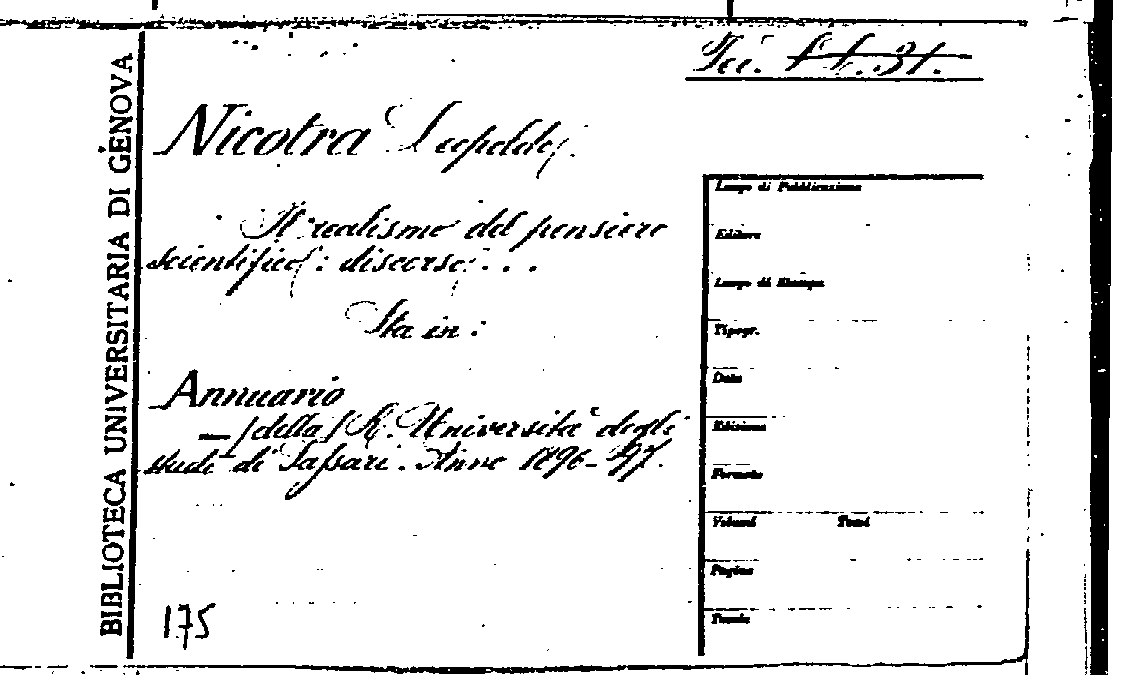 BIBLIOTECA UNIVERSITARIA DI GENOVA
Nicotra Leopoldo
Il realismo del pensiero
scientifico: discorso; . . .
Sta in:
Annuario
— /della/ R. Università degli
studi di Sassari. Anno 1896-97.
175
Luogo di Pubblicazione
Editore
Luogo di Stampa
Tipogr.
Data
Edizione
Formato
Volumi Tomi
Pagine
Tavole